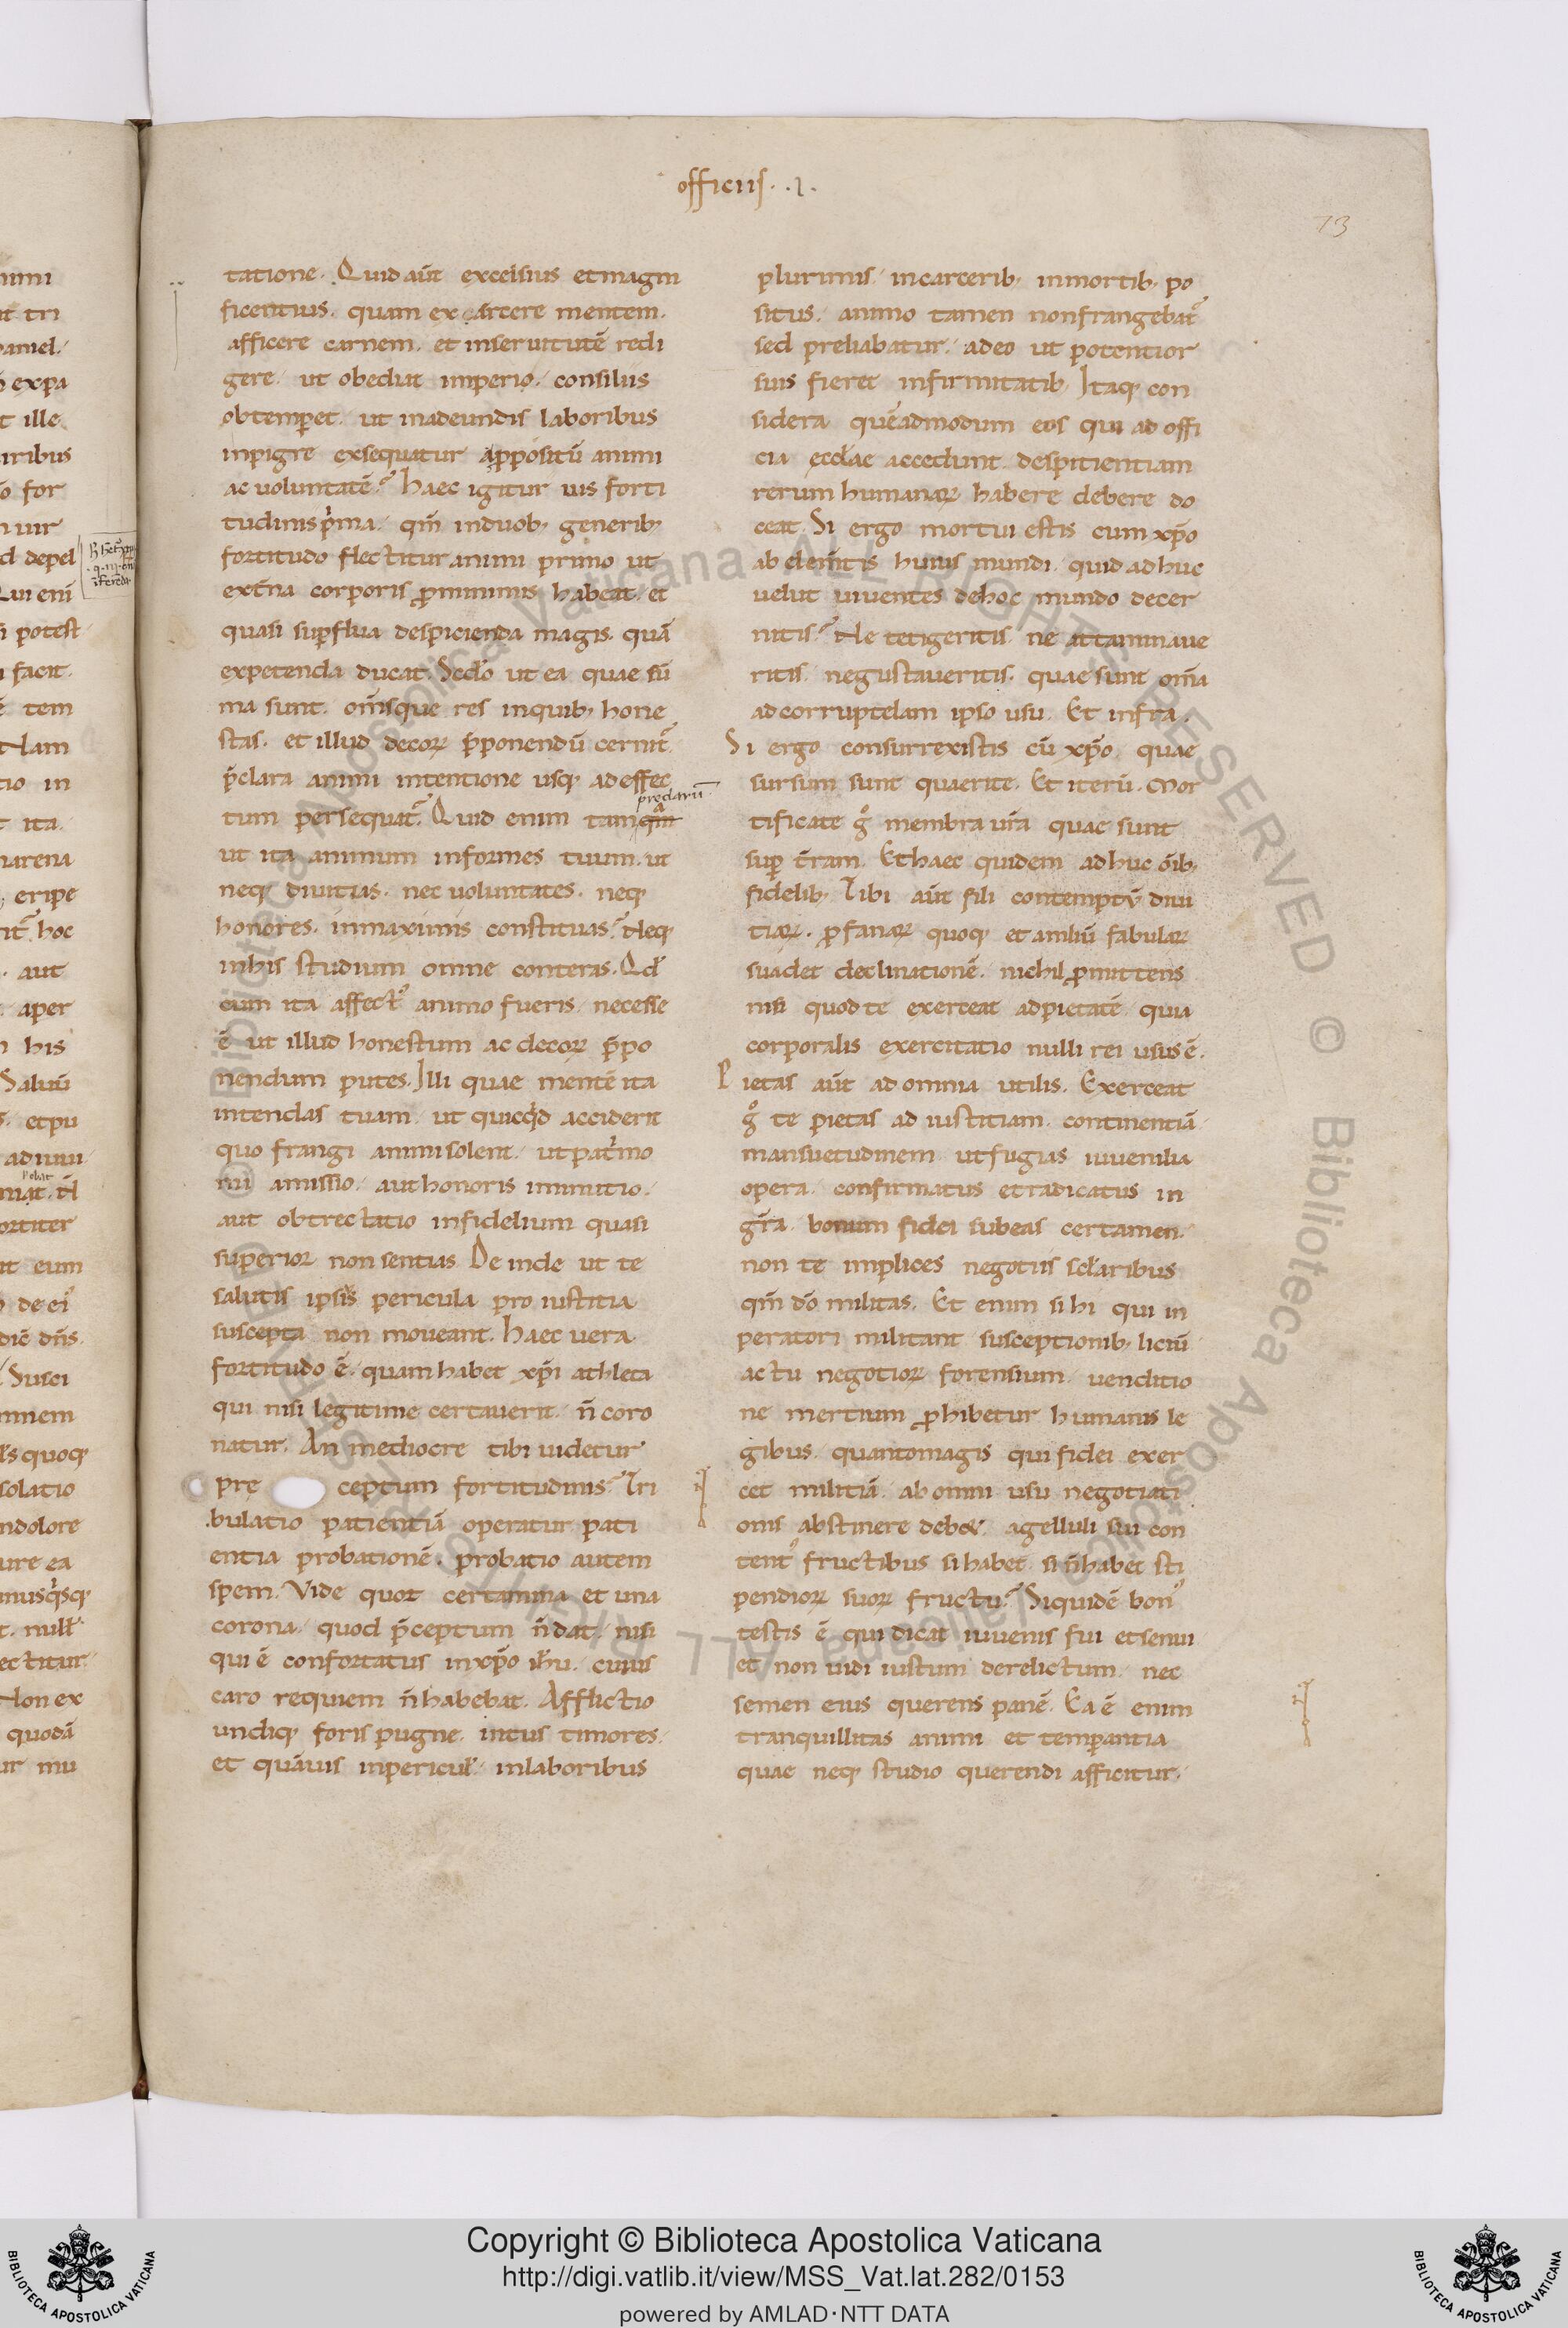 officiis · .1.
73
tatione. Quid aūt excelsius et magni
ficentius. quam exercere mentem.
afficere carnem. et inseruitutē redi
gere. ut obediat imperio. consiliis
obtemꝑet. ut inadeundis laboribus
inpigre exsequatur appositū animi
ac uoluntatē? haec igitur uis forti
tudinis pͥma. qm̄ induob; generib;
fortitudo flectitur animi primo ut
ext̄na corporis ꝓ minimis habeat. et
quasi suꝑflua despicienda magis. quā
expetenda ducat. Sedo ut ea quae sū
ma sunt. om̄sque res inquib; hone
stas. et illud decoꝝ p̄ponendū cernit̄.
p̄clara animi intentione usq; ad effec
preclarū
tum persequat̄. Quid enim tam qm
ut ita animum informes tuum. ut
neq; diuitias. nec uoluntates. neq;
honores. inmaximis constituas? Neq;
inhis studium omne conteras. Qd̄
cum ita affectꝰ animo fueris. necesse
ē ut illud honestum ac decoꝝ p̄po
nendum putes. Illi quae mentē ita
intendas tuam. ut quicqͥd acciderit
quo frangi animi solent. ut patͥmo
nii amissio. aut honoris inminutio.
aut obtrectatio infidelium quasi
superior non sentias. De inde ut te
salutis ipsiꝰ pericula pro iustitia
suscepta non moueant. haec uera
fortitudo ē. quam habet xp̄i athleta
qui nisi legitime certauerit. n̄ coro
natur. An mediocre tibi uidetur
pre ceptum fortitudinis? Tri
bulatio patientiā operatur pati
entia probationē. probatio autem
spem. Vide quot certamina et una
corona. quod p̄ceptum n̄ dat. nisi
qui ē confortatus inxp̄o ih̄u. cuius
caro requiem n̄ habebat. Afflictio
undiq; foris pugne. intus timores.
et quāuis inpericul̄. inlaboribus
plurimis. incarcerib; inmortib; po
situs. animo tamen non frangebatᷣ
sed preliabatur. adeo ut potentior
suis fieret infirmitatib; Itaq; con
sidera quēadmodum eos qui ad offi
cia eccl̄ae accedunt. despitientiam
rerum humanaꝝ habere debere do
ceat. Si ergo mortui estis cum xp̄o
ab elem̄tis huius mundi. quid adhuc
uelut uiuentes dehoc mundo decer
nitis? Ne tetigeritis. ne attaminaue
ritis. negustaueritis. quae sunt om̄a
adcorruptelam ipso usu. Et infra.
Si ergo consurrexistis cū xp̄o. quae
sursum sunt quaerite. Et iterū. Mor
tificate gͦ membra ur̄a quae sunt
suꝑ t̄ram. Ethaec quidem adhuc ōib;
fidelib; Tibi aūt fili contemptū diui
tiaꝝ. ꝓfanaꝝ quoq; et aniliū fabulaꝝ
suadet declinationē. nichil ꝓmittens
nisi quod te exerceat adpietatē quia
corporalis exercitatio nulli rei usus ē.
Pietas aūt ad omnia utilis. Exerceat
gͦ te pietas ad iustitiam. continentiā.
mansuetudinem ut fugias iuuenilia
opera. confirmatus et radicatus in
gr̄a. bonum fidei subeas certamen.
non te implices negotiis scl̄aribus
qm̄ dō militas. Et enim si hi qui in
peratori militant susceptionib; litiū
actu negotioꝝ forensium. uenditio
ne mertium ꝓhibetur humanis le
gibus. quantomagis qui fidei exer
cet militiā. ab omni usu negotiati
onis abstinere debet. agelluli sui con
tentꝰ fructibus si habet. si n̄ habet sti
pendioꝝ suoꝝ fructu? Siquidē bonꝰ
testis ē qui dicat iuuenis fui et senui
et non uidi iustum derelictum. nec
semen eius querens panē. Ea ē enim
tranquillitas animi et temꝑantia
quae neq; studio querendi afficitur.
Copyright © Biblioteca Apostolica Vaticana
http://digi.vatlib.it/view/MSS_Vat.lat.282/0153
powered by AMLAD·NTT DATA